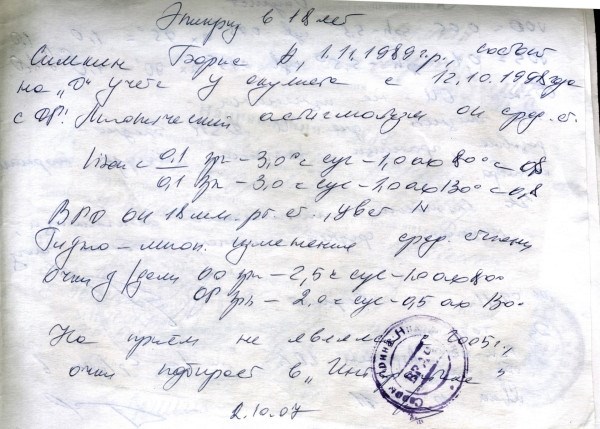 Эпикриз в 18 лет
Симкин Борис А, 1.11.1989 г.р., состоит
на "Д" учёте у окулиста с 12.10.1998 года
с DS: Миопический астигматизм ou сред. ст.
Visus = 0,1 sph -3,0 c cyl -1,0 ax 80° = 0,8
0,1 sph -3,0 c cyl -1,0 ax 130° = 0,8
ВГД ou 18 мм. рт. ст., цвет N
Гл. дно - миоп. изменения сред. степени
Очки д/дали OD sph -2,5 c cyl -1.0 ax 80°
OS sph -2.0 c cyl -0,5 ax 130°
На приём не являлся 2005 г.,
очки подбирает в "
2.10.07
ВРАЧ